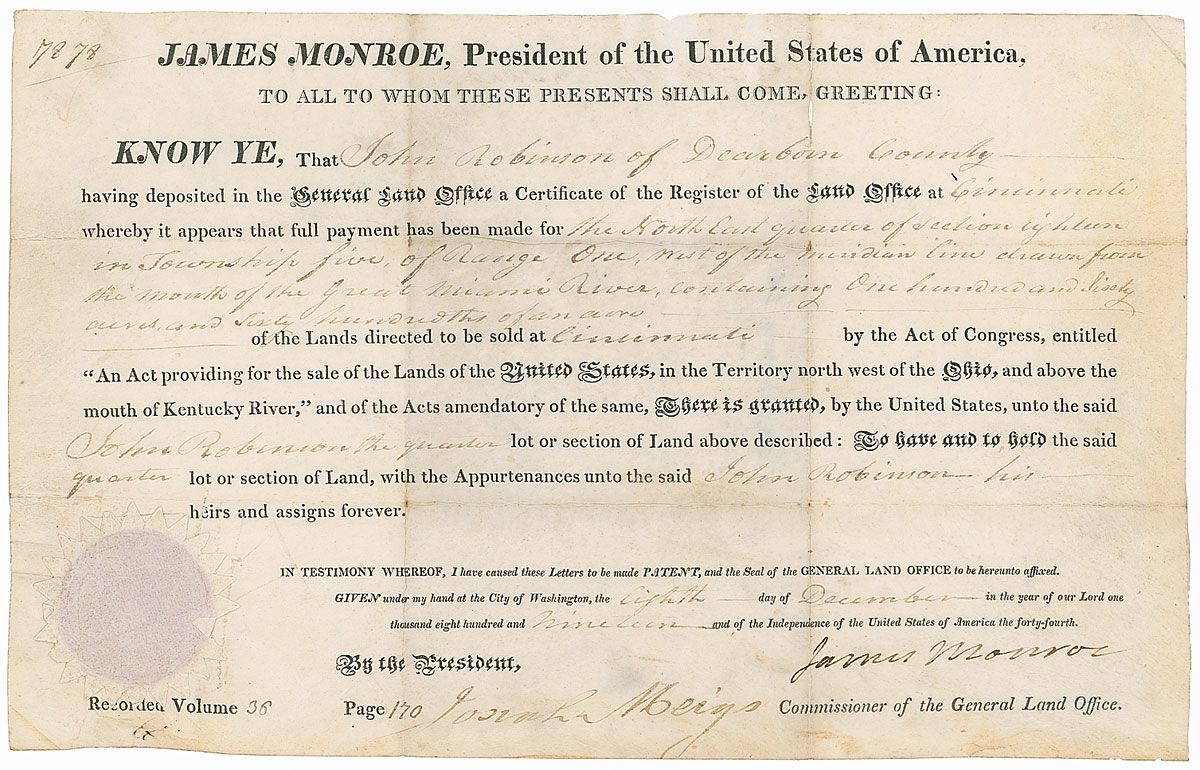 7878
JAMES MONROE, President of the United States of America,
TO ALL TO WHOM THESE PRESENTS SHALL COME, GREETING:
KNOW YE, That John Robinson of Dearborn County
having deposited in the General Land Office a Certificate of the Register of the Land Office at Cincinnati
whereby it appears that full payment has been made for the North East quarter of section eighteen
in Township five, of Range One, west of the meridian line drawn from
the mouth of the Great Miami River, containing One hundred and Sixty
acres, and Sixty hundredths of an acre
of the Lands directed to be sold at Cincinnati by the Act of Congress, entitled
“An Act providing for the sale of the Lands of the United States, in the Territory north west of the Ohio, and above the
mouth of Kentucky River,” and of the Acts amendatory of the same, There is granted, by the United States, unto the said
John Robinson the quarter lot or section of Land above described: To have and to hold the said
quarter lot or section of Land, with the Appurtenances unto the said John Robinson his
heirs and assigns forever.
IN TESTIMONY WHEREOF, I have caused these Letters to be made PATENT, and the Seal of the GENERAL LAND OFFICE to be hereunto affixed.
GIVEN under my hand at the City of Washington, the eighth day of December in the year of our Lord one
thousand eight hundred and nineteen and of the Independence of the United States of America the forty-fourth.
James Monroe
By the President,
Recorded Volume 36 Page 170 Josiah Meigs Commissioner of the General Land Office.